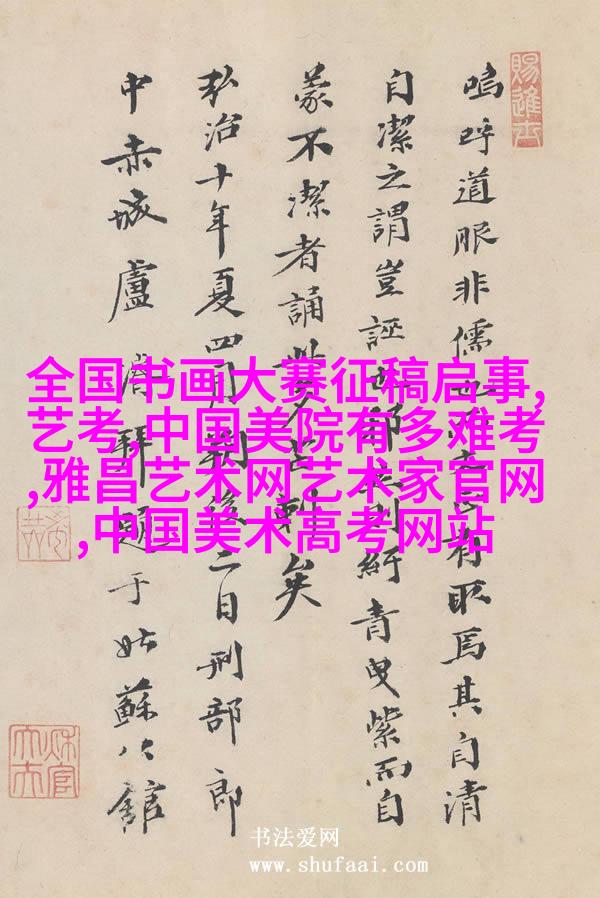 全国书画大赛征稿启事,
艺考,中国美院有多难考
,雅昌艺术网艺术家官网
,中国美术高考网站
賜進士
嗚呼道眼非儒言有取焉其自清
自潔之謂豈誣則紆青曳紫而自
蒙不潔者誦此矣
弘治十年夏四月後二日刑部郎
中赤城盧濬拜題于姑蘇公館
书法爱网
www.shufaai.com